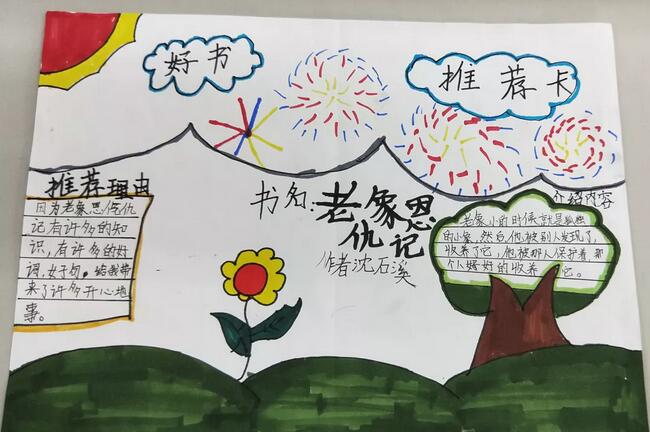 好书
推荐卡
推荐理由
因为老象恩仇
记有许多的知
识,有许多的好
词,好句。给我带
来了许多开心地
事。
书名:老象恩
仇记
作者沈石溪
介绍内容
老象小的时候就是孤独
的小象,然后,他被别人发现了,
收养了它,他被那人保护着,那
个人好好的收养了它。